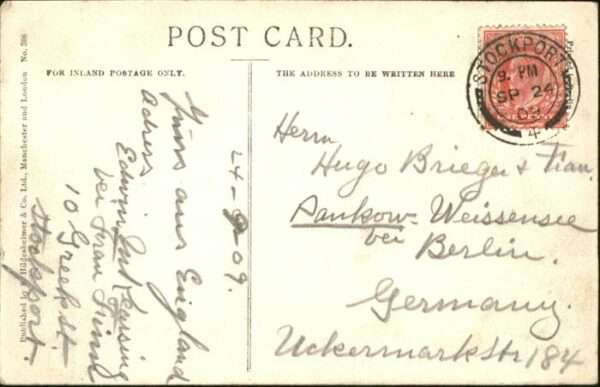 POST CARD.
FOR INLAND POSTAGE ONLY.
THE ADDRESS TO BE WRITTEN HERE
STOCKPORT
9. PM
SP 24
09
4
Published by Hildesheimer & Co. Ltd., Manchester and London No. 598
24-9-09.
Gruss aus England
Adress
Edwin
bei Frau
10 Greek st.
Stockport.
Herrn
Hugo Brieger & Frau.
Pankow-Weissensee
bei
Berlin.
Germany.
Uckermarkstr 184